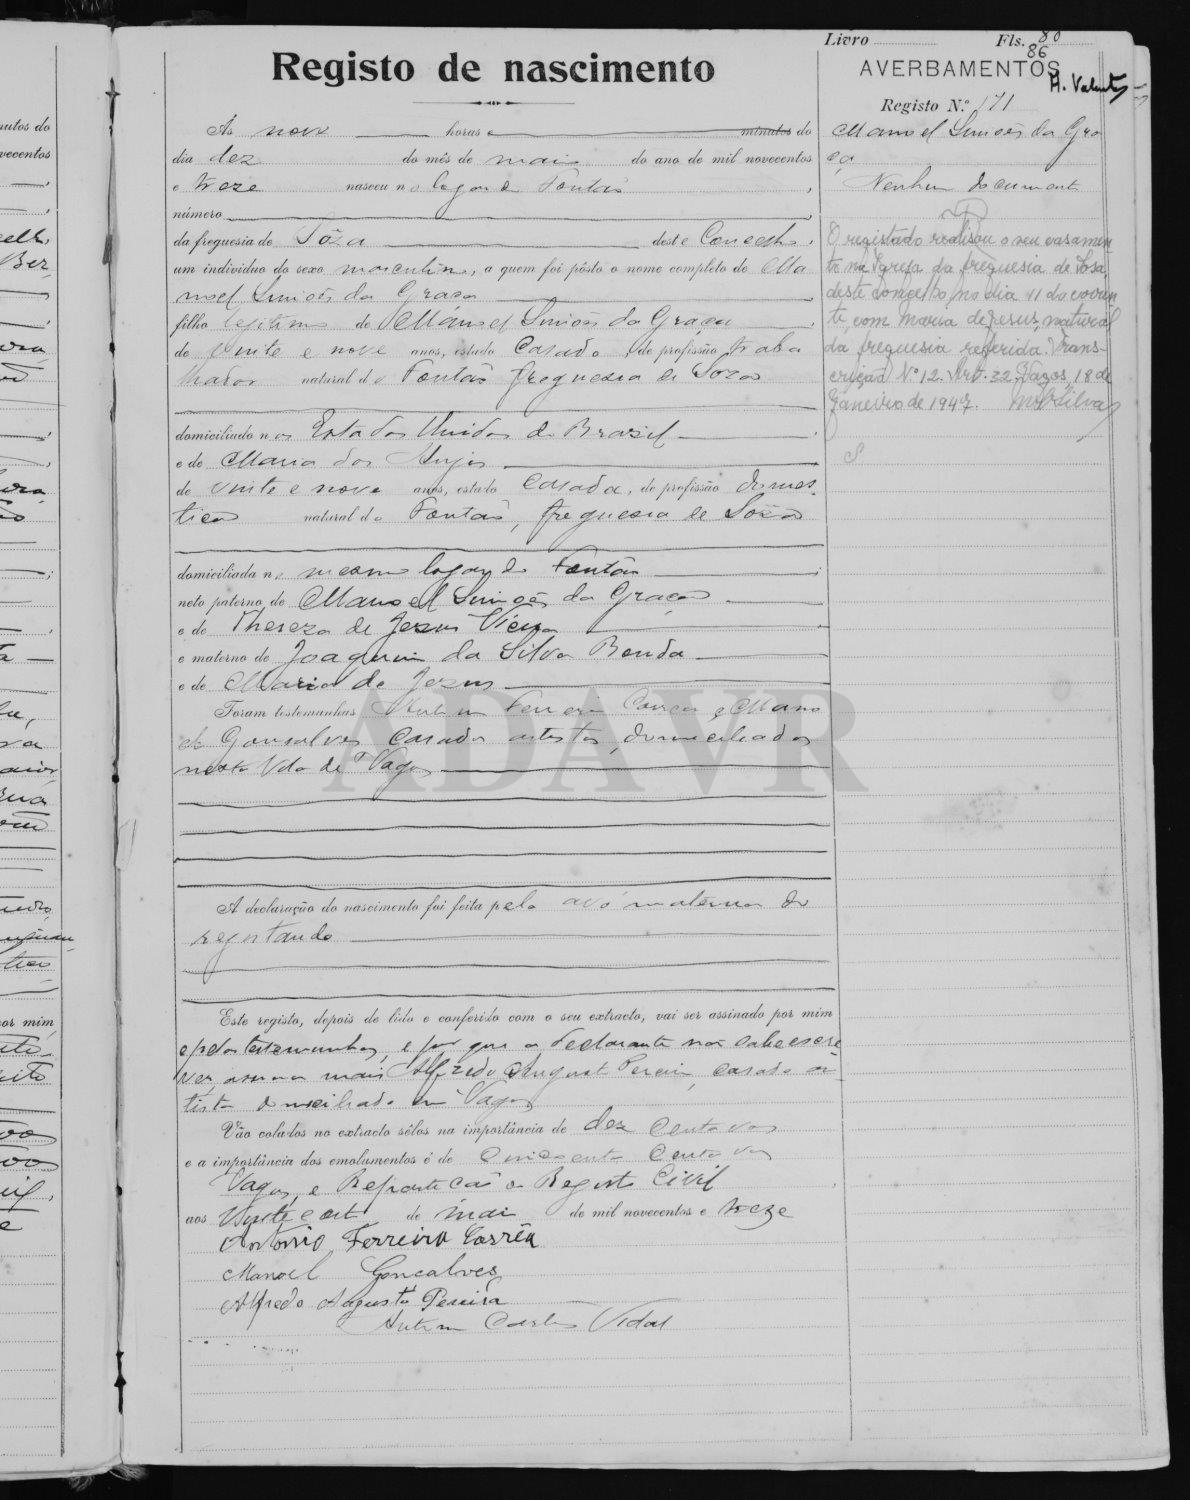 Livro Fls. 80
86
Registo de nascimento
AVERBAMENTOS
Registo N.º 171
Às nove horas e minutos do
dia dez do mês de maio do ano de mil novecentos
e treze nasceu no logar de Fontão
número
da freguesia de Sôza deste Concelho,
um individuo do sexo masculino, a quem foi pôsto o nome completo de Ma
noel Simões da Graça
filho legitimo de Manoel Simões da Graça
de vinte e nove anos, estado Casado, de profissão traba
lhador natural de Fontão freguesia de Soza
domiciliado nos Estados Unidos do Brazil
e de Maria dos Anjos
de vinte e nove anos, estado Casada, de profissão domes
tica natural de Fontão, freguesia de Soza
domiciliada no mesmo logar de Fontão
neto paterno de Manoel Simões da Graça
e de Thereza de Jezus Vieira
e materno de Joaquim da Silva Benda
e de Maria de Jezus
Foram testemunhas Ferreira Corrêa e Mano
el Gonsalves Casados artistas, domiciliados
nesta Vila de Vagos
A declaração do nascimento foi feita pela avó materna do
registando
Este registo, depois de lido e conferido com o seu extracto, vai ser assinado por mim
e pelas testemunhas, e por que a declarante não sabe escre
ver, assina mais Alfredo Augusto Pereira, casado ar
tista domiciliado em Vagos
Vão colados no extracto sêlos na importância de dez Centavos
e a importância dos emolumentos é de Cincoenta Centavos
Vagos, e Repartição do Registo Civil
aos vinte e oito de maio de mil novecentos e treze
Antonio Ferreira Corrêa
Manoel Goncalves
Alfredo Augusto Pereira
Carlos Vidal
Manoel Simões da Gra
ça
Nenhum documento
O registado realisou o seu casamen
to na Igreja da freguesia de Sosa,
deste concelho, no dia 11 do corren
te, com Maria de Jesus, natural
da freguesia referida. Trans-
crição Nº 12. Art. 32. Vagos, 18 de
Janeiro de 1947.
ADAVR